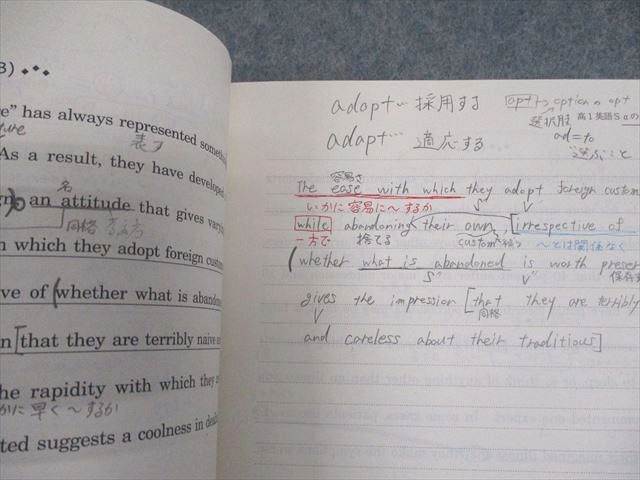 3) ◆◆◆
re" has always represented someth
表す
As a result, they have developed
名
an attitude that gives varyi
同格
n which they adopt foreign custom
ve of (whether what is abandone
n [that they are terribly naive a
he rapidity with which they a
かに早く〜するか
ted suggests a coolness in deali
adopt… 採用する
adapt… 適応する
opt → option の opt
選択肢
高1英語Sαの
ad = to
選ぶこと
容易さ
The ease with which they adopt foreign custom
いかに容易に〜するか
while abandoning their own [irrespective of
一方で 捨てる 〜とは関係なく
(whether what is abandoned is worth preser
S" V" 保存
gives the impression [that they are terribly
V 同格
and careless about their traditions]